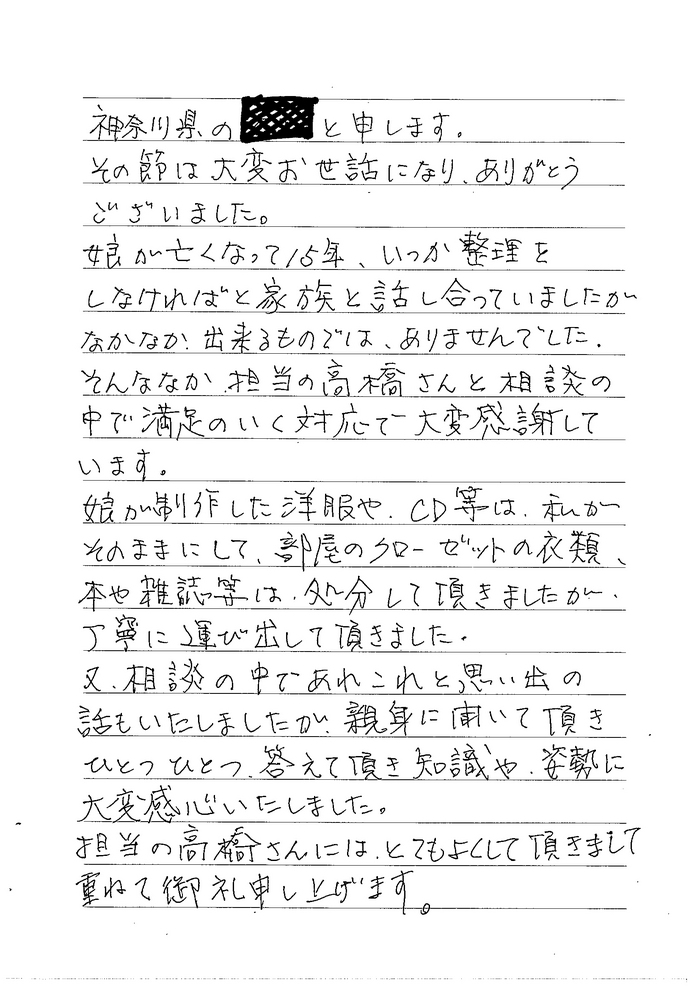 神奈川県の
と申します。
その節は大変お世話になり、ありがとう
ございました。
娘が亡くなって15年、いつか整理を
しなければと家族と話し合っていましたが
なかなか、出来るものでは、ありませんでした。
そんななか、担当の高橋さんと相談の
中で満足のいく対応で大変感謝して
います。
娘が制作した洋服や、CD等は、私が
そのままにして、部屋のクローゼットの衣類、
本や雑誌等は、処分して頂きましたが、
丁寧に運び出して頂きました。
又、相談の中であれこれと思い出の
話もいたしましたが、親身に聞いて頂き
ひとつひとつ、答えて頂き知識や、姿勢に
大変感心いたしました。
担当の高橋さんには、とてもよくして頂きまして
重ねて御礼申し上げます。